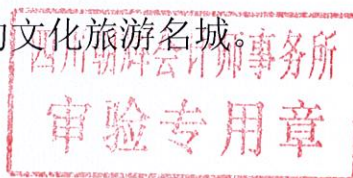 的文化旅游名城。
四川朝辉会计师事务所
审验专用章